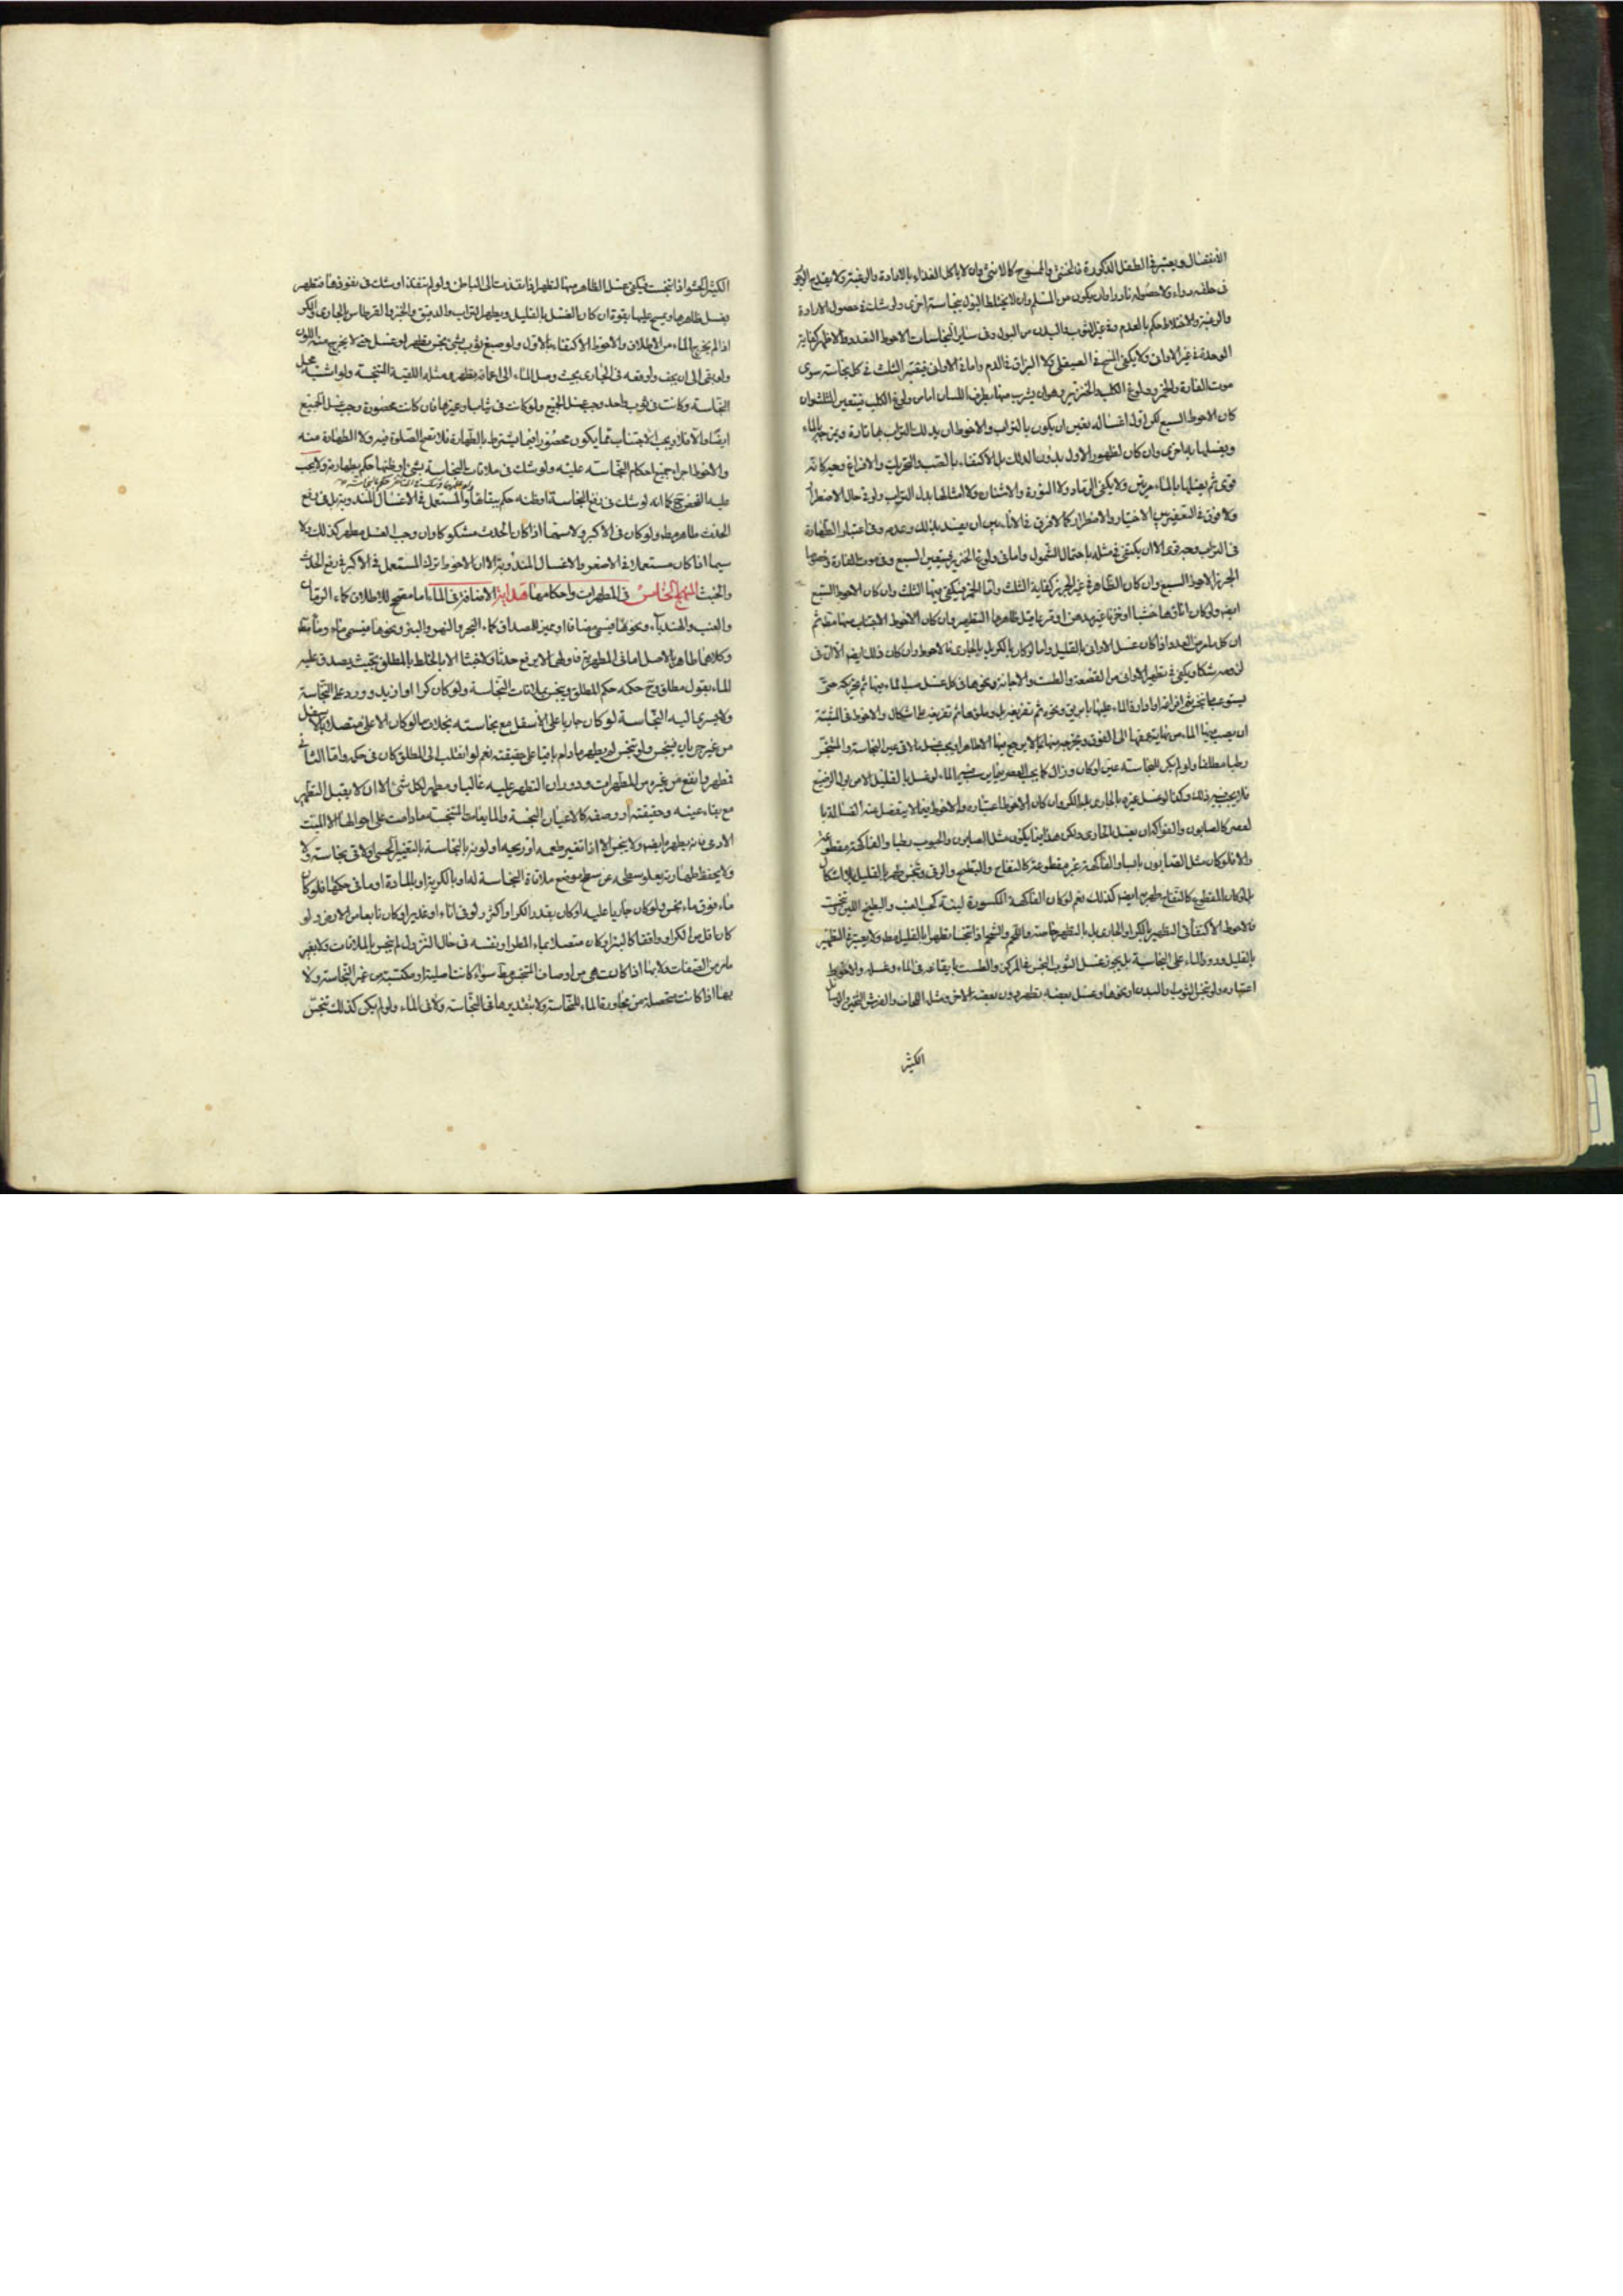 الانفصال ويعتبر في الطفل الذكورة فالخنثى والممسوح كالانثى وان لا ياكل الغذاء بالارادة والرغبة ولا يقدح
في حلقه دواء ولا حصوله نادرا وان يكون من المسلم وان لا يختلط البول بنجاسة اخرى ولو شك في حصول الارادة
والرغبة والاختلاط حكم بالعدم وفي غير الثوب والبدن من البول وفي ساير النجاسات الاحوط التعدد والاظهر كفاية
الوحدة في غير الاواني ولا يكفى المسح في الصيقلى ولا البزاق في الدم واما في الاواني فيعتبر الثلث في كل نجاسة سوى
موت الفارة والخمر وولوغ الكلب والخنزير وهو ان يشرب منها بطرف اللسان اما من ولوغ الكلب فيتعين الثلث وان
كان الاحوط السبع لكن اول اغساله يتعين ان يكون بالتراب والاحوط ان يدلك التراب بها تارة ويمزجه بالماء
ويغسلها به اخرى وان كان لظهور الاول بدون الدلك بل الاكتفاء بالصب والتحريك والافراغ وجيه كانه
قوى ثم يغسلها بالماء مرتين ولا يكفى الرماد ولا النورة والاشنان ولا امثالها بدل التراب ولو في حال الاضطرار
ولا فرق في التعفير بين الاختيار والاضطرار كما لا فرق في الاناء بين ان يفسد بذلك وعدمه وفي اعتبار الطهارة
في التراب وجه قوى الا ان يكتفى في مثله باحتمال الشمول واما في ولوغ الخنزير فيتعين السبع وفي موت الفارة وخصوصا
الجرذ الاحوط السبع وان كان الظاهر في غير الجرذ كفاية الثلث واما الخمر فيكفى فيها الثلث وان كان الاحوط السبع
ايضا ولو كان اناؤها خشبا او خزفا غير مدهن او قرعا قبل ظاهرها التطهير وان كان الاحوط الاجتناب عنها مطلقا ثم
ان كل ما مر من العدد اذا كان غسل الاواني بالقليل واما لو كان بالكر بل بالجارى فالاحوط وان كان ذلك ايضا الا ان في
لزومه شكا ويكفى في تطهير الاواني من القصعة والطست والاجانة ونحوها في كل غسل صب الماء فيها ثم تحريكه حتى
يستوعب ما تنجس ثم افراغها او ادارة الماء عليها بابريق ونحوه ثم تفريغه بل وملؤها ثم تفريغه على اشكال والاحوط في المثبتة
ان يصب فيها الماء من نهايته
رطبا مطلقا ولو لم يكن للنجاسة عين او كان وزال كما يجب العصر
فلا يجب غير ذلك وكذا لو غسل غيره بالجارى بل بالكر وان كان الاحوط اعتباره والاحوط فيما لا ينفصل عنه الغسالة
لعصر كالصابون والفواكه ان يغسل بالجارى ولكن هذا فيما يكون مثل الصابون والحبوب رطبا والفاكهة مقطوعة
والا فلو كان مثل الصابون يابسا والفاكهة غير مقطوعة كالتفاح والبطيخ والرقى وتنجس طهر بالقليل بلا اشكال
بل لو كان المقطوع كالتفاح طهر ايضا كذلك نعم لو كان الفاكهة المكسورة لينة كحب العنب والبطيخ اللين تنجست
فالاحوط الاكتفاء في التطهير بالكر او الجارى
بالقليل ورود الماء على النجاسة بل يجوز غسل الثوب النجس في المركن والطست بايقاعه في الماء وغسله والاحوط
اعتباره ولو تنجس الثوب او البدن او نحوهما وغسل بعضه تطهر دون بعضه الاخر ومثل اللحاف والفرش الثخين والوسائل
الكثير
الكثير الحشو اذا تنجست فيكفى غسل الظاهر منها لتطهير اذا نفذت الى الباطن ولو لم تنفذ او شك في نفوذها فتطهر
بغسل ظاهرها ويمسح عليها بقوة ان كان الغسل بالقليل ويطهر التراب والدقيق والخبز والقرطاس بالجارى والكر
اذا لم يخرج الماء من الاطلاق والاحوط الاكتفاء بالاول ولو صبغ ثوب بشئ نجس يطهر لو غسل حتى لا يخرج منه اللون
ولو بقى الى ان يجف واوقعه في الجارى بحيث وصل الماء الى اعماقه يطهر ومثله اللقية النجسة ولو اشتبه محل
النجاسة وكانت في ثوب واحد وجب غسل الجميع ولو كانت في ثياب او غيرها فان كانت محصورة وجب غسل الجميع
ايضا والا فلا ويجب الاجتناب عما يكون محصورا فيما اشترط بالطهارة فلا تصح الصلوة فيه ولا الطهارة منه
والاحوط اجراء جميع احكام النجاسة عليه ولو شك في ملاقات النجاسة بشئ او ظنها حكم بطهارته ولا يجب
عليه الفحص ح كما انه لو شك في رفع النجاسة او ظنه حكم ببقائها والمستعمل في الاغسال المندوبة بل في رفع
الحدث طاهر مطلقا ولو كان في الاكبر ولا سيما اذا كان الحدث مشكوكا وان وجب الغسل مطهر كذلك ولا
سيما اذا كان مستعملا في الاصغر والاغسال المندوبة الا ان الاحوط ترك المستعمل في الاكبر في رفع الحدث
والخبث المنهج الخامس في المطهرات واحكامها هداية الاضافة في الماء اما مصحح للاطلاق كماء الرمان
والعنب والهندباء ونحوها فيسمى مضافا او مميز للمصداق كماء البحر والنهر والبئر ونحوها فيسمى ماء وماء مطلقا
وكلاهما طاهر بالاصل اما في المطهرية فاولهما لا يرفع حدثا ولا خبثا الا بالخلط بالمطلق بحيث يصدق عليه
الماء بقول مطلق وح حكمه حكم المطلق وينجس بملاقات النجاسة ولو كان كرا او ازيد وورد على النجاسة
ولا يسرى اليه النجاسة لو كان جاريا على الاسفل مع نجاسته بخلاف ما لو كان الاعلى متصلا بالاسفل
من غير جريان فينجس ولو تنجس لم يطهر ما دام باقيا على حقيقته نعم لو انقلب الى المطلق كان في حكمه واما الثاني
فطهر وانفع من غيره من المطهرات ودوران التطهر عليه غالبا ومطهر لكل شئ الا ان لا يقبل التطهير
مع بقاء عينه وحقيقته او وصفه كالاعيان النجسة والمايعات المتنجسة ما دامت على احوالها الا الميت
الادمى فانه يطهر به ايضا ولا ينجس الا اذا تغير طعمه او ريحه او لونه بالنجاسة بالتغيير الحسى او لاقى نجاسة ولا
ولا يحفظ طهارته بعلو سطحه عن سطح موضع ملاقاة النجاسة له او بالكرية او بالمادة او ما في حكمها فلو كان
ماء فوق ماء نجس ولو كان جاريا عليه او كان بقدر الكر او اكثر ولو في اناء او غدير او كان نابعا من الارض ولو
كان اقل من الكر او واقفا كالبئر او كان متصلا بماء المطر او نفسه في حال النزول لم ينجس بالملاقات ولا بغير
ما مر من الصفات ولا بها اذا كانت هى من اوصاف المتنجس مط سواء كانت اصلية او مكتسبة من غير النجاسة ولا
بها اذا كانت متحصلة من مجاورة الماء للنجاسة ولا بتقديرها في النجاسة ولا في الماء ولو لم يكن كذلك تنجس